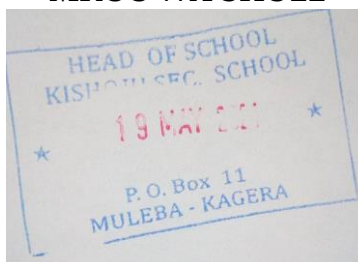 HEAD OF SCHOOL
SEC. SCHOOL
19 MAY
P. O. Box 11
MULEBA - KAGERA